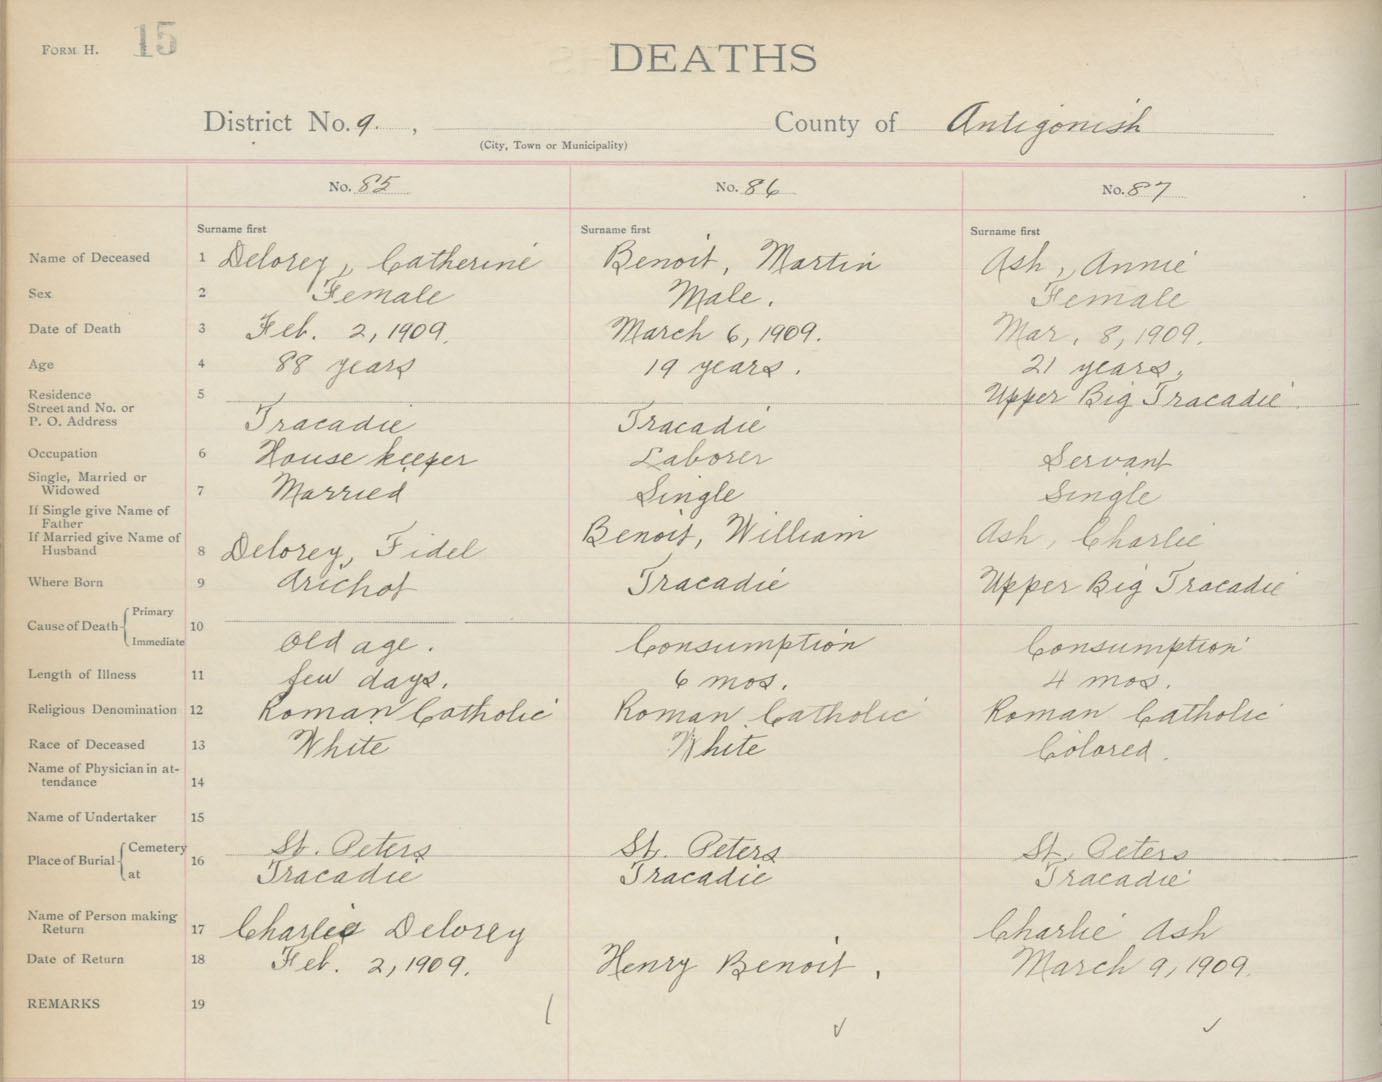 FORM H. 15
DEATHS
District No. 9. , County of Antigonish
(City, Town or Municipality)
No. 85 No. 86 No. 87
Surname first Surname first Surname first
Name of Deceased 1 Delorey, Catherine Benoit, Martin Ash, Annie
Sex 2 Female Male. Female
Date of Death 3 Feb. 2, 1909. March 6, 1909. Mar. 8, 1909.
Age 4 88 years 19 years. 21 years.
Residence 5 Upper Big Tracadie
Street and No. or
P. O. Address Tracadie Tracadie
Occupation 6 House keeper Laborer Servant
Single, Married or
Widowed 7 Married Single Single
If Single give Name of
Father Benoit, William Ash, Charlie
If Married give Name of
Husband 8 Delorey, Fidel
Where Born 9 Arichat Tracadie Upper Big Tracadie
Cause of Death Primary 10
Immediate Old age. Consumption Consumption
Length of Illness 11 few days. 6 mos. 4 mos.
Religious Denomination 12 Roman Catholic Roman Catholic Roman Catholic
Race of Deceased 13 White White Colored.
Name of Physician in at-
tendance 14
Name of Undertaker 15
Place of Burial Cemetery 16 St. Peters St. Peters St. Peters
at Tracadie Tracadie Tracadie
Name of Person making
Return 17 Charlie Delorey Charlie Ash
Date of Return 18 Feb. 2, 1909. Henry Benoit. March 9, 1909.
REMARKS 19